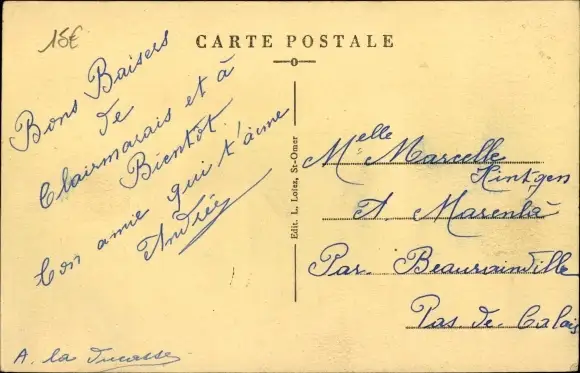 15€
CARTE POSTALE
Bons Baisers
de
Clairmarais et à
Bientôt.
Ton amie qui t'aime
Andrée
A. la Ducasse
Edit. L. Loiez, St-Omer
Melle Marcelle
Hintgen
A. Marenla
Par. Beaurainville
Pas. de. Calais